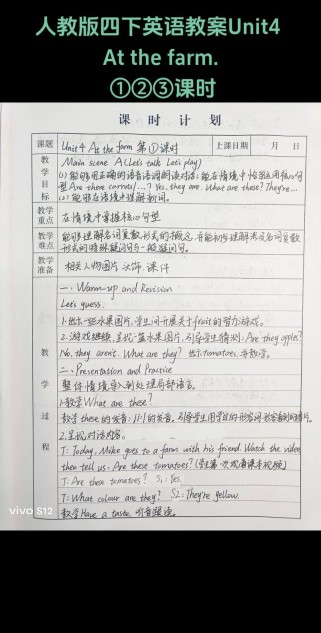 人教版四下英语教案Unit4
At the farm.
①②③课时
课 时 计 划
课题 Unit4 At the farm 第①课时 上课日期 月 日
教学目标 Main scene A(Let's talk Let's play)
(1) 能够用正确的语音语调朗读对话；能在情境中恰当运用核心句
型 Are there carrots/...? Yes, they are. What are these? They're...
(2) 能够在语境中理解新词。
教学重点 在情境中掌握核心句型
教学难点 能初步理解名词复数形式的概念，并能初步理解涉及名词复数
形式的特殊疑问句与一般疑问句。
教学准备 相关人物图片 头饰 课件
教学过程
一. Warm-up and Revision
Let's guess.
1.出示一些水果图片，学生间开展关于fruit的智力游戏。
2.游戏继续，呈现一篮水果图片，引导学生猜测: Are they apples?
No, they aren't. What are they? 出示tomatoes，并教学。
二. Presentation and Practice
整体情境导入到处理局部语言。
1.教学What are these?
教学these的发音: /i:/的发音。引导学生用学过的形容词
2.呈现对话内容。
T: Today, Mike gets to a farm with his friend. Watch the video,
then tell us: Are these tomatoes? (学生第一次观看课本视频)
T: Are these tomatoes? S1: Yes.
T: What colour are they? S2: They're yellow.
教学Have a taste. 听音跟读。
vivo S12